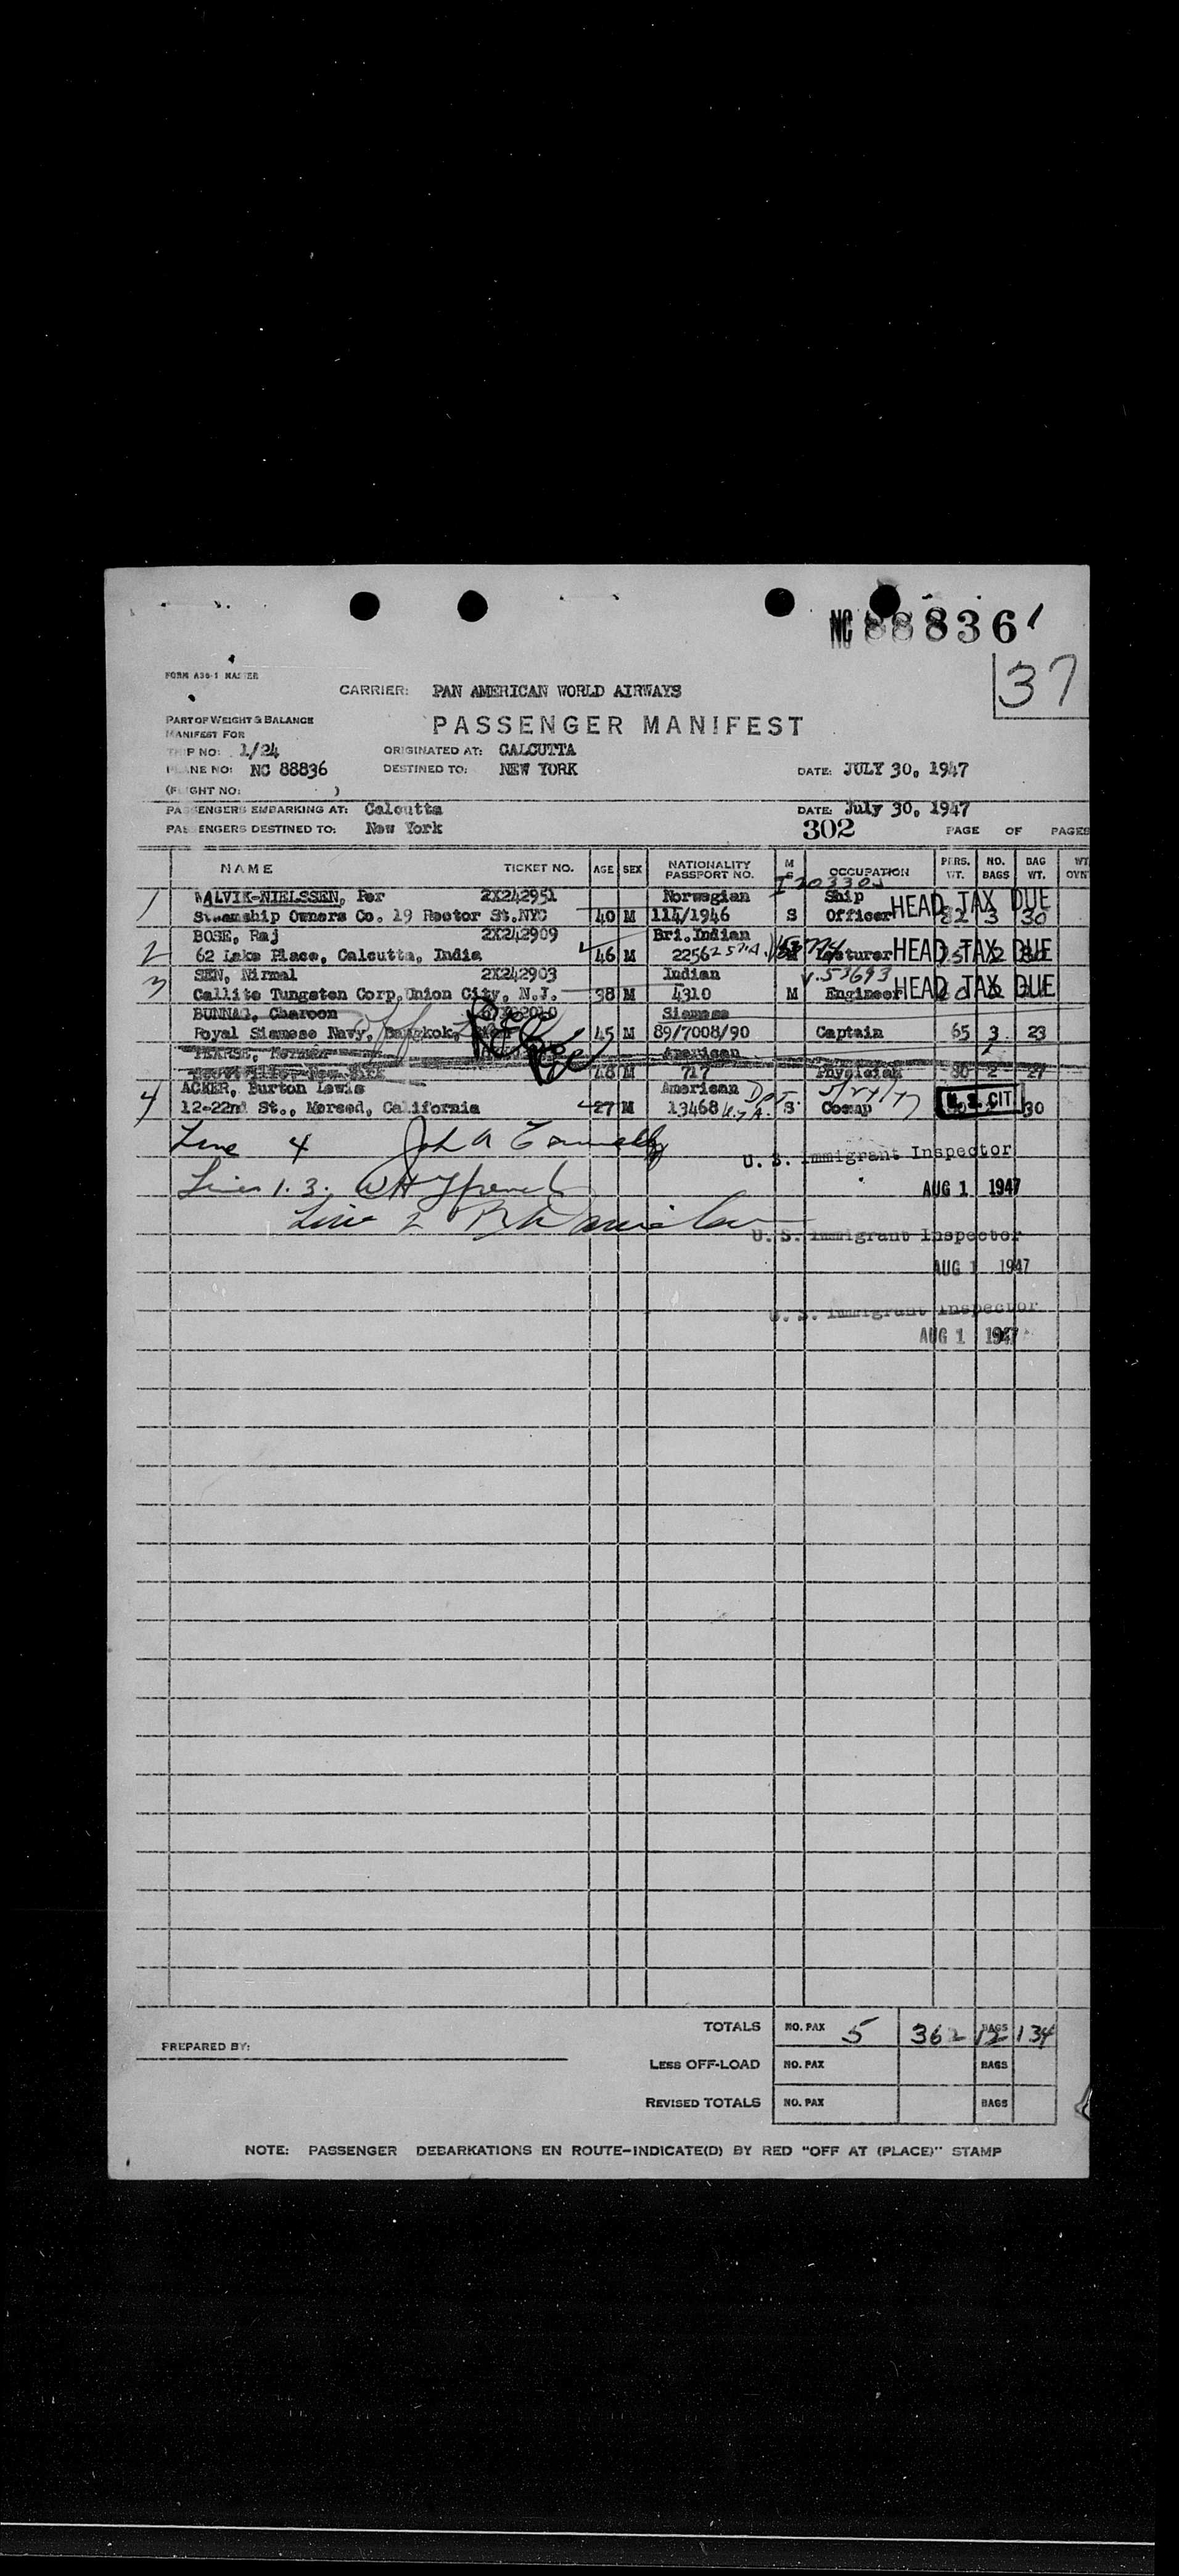 NC 88836
37
FORM A36-1 MASTER
CARRIER: PAN AMERICAN WORLD AIRWAYS
PART OF WEIGHT & BALANCE
MANIFEST FOR
PASSENGER MANIFEST
TRIP NO: 1/24 ORIGINATED AT: CALCUTTA
PLANE NO: NC 88836 DESTINED TO: NEW YORK DATE: JULY 30, 1947
(FLIGHT NO: )
PASSENGERS EMBARKING AT: Calcutta DATE: July 30, 1947
PASSENGERS DESTINED TO: New York 302 PAGE OF PAGES
NAME TICKET NO. AGE SEX NATIONALITY PASSPORT NO. M S OCCUPATION PERS. WT. NO. BAGS BAG WT.
1 WALVIK-NIELSSEN, Per 2X242951 Norwegian Ship HEAD TAX DUE
Steamship Owners Co. 19 Rector St.NYC 40 M 114/1946 S Officer 82 3 30
2 BOSE, Raj 2X242909 Bri.Indian
62 Lake Place, Calcutta, India 46 M 22562 Lecturer HEAD TAX DUE
3 SEN, Nirmal 2X242903 Indian V.53693
Callite Tungsten Corp,Union City, N.J. 38 M 4310 M Engineer HEAD TAX DUE
BUNNAG, Charoon Siamese
Royal Siamese Navy, Bangkok, 45 M 89/7008/90 Captain 65 3 23
American
48 M 717 Physician 2 27
4 ACKER, Burton Lewis American
12-22nd St., Merced, California 27 M 13468 S U.S. CIT 30
Line 4
U. S. Immigrant Inspector
Lines 1. 3.
AUG 1 1947
Line 2
U. S. Immigrant Inspector
AUG 1 1947
U. S. Immigrant Inspector
AUG 1 1947
TOTALS NO. PAX 5 362 BAGS 12 134
PREPARED BY:
LESS OFF-LOAD NO. PAX BAGS
REVISED TOTALS NO. PAX BAGS
NOTE: PASSENGER DEBARKATIONS EN ROUTE-INDICATE(D) BY RED "OFF AT (PLACE)" STAMP